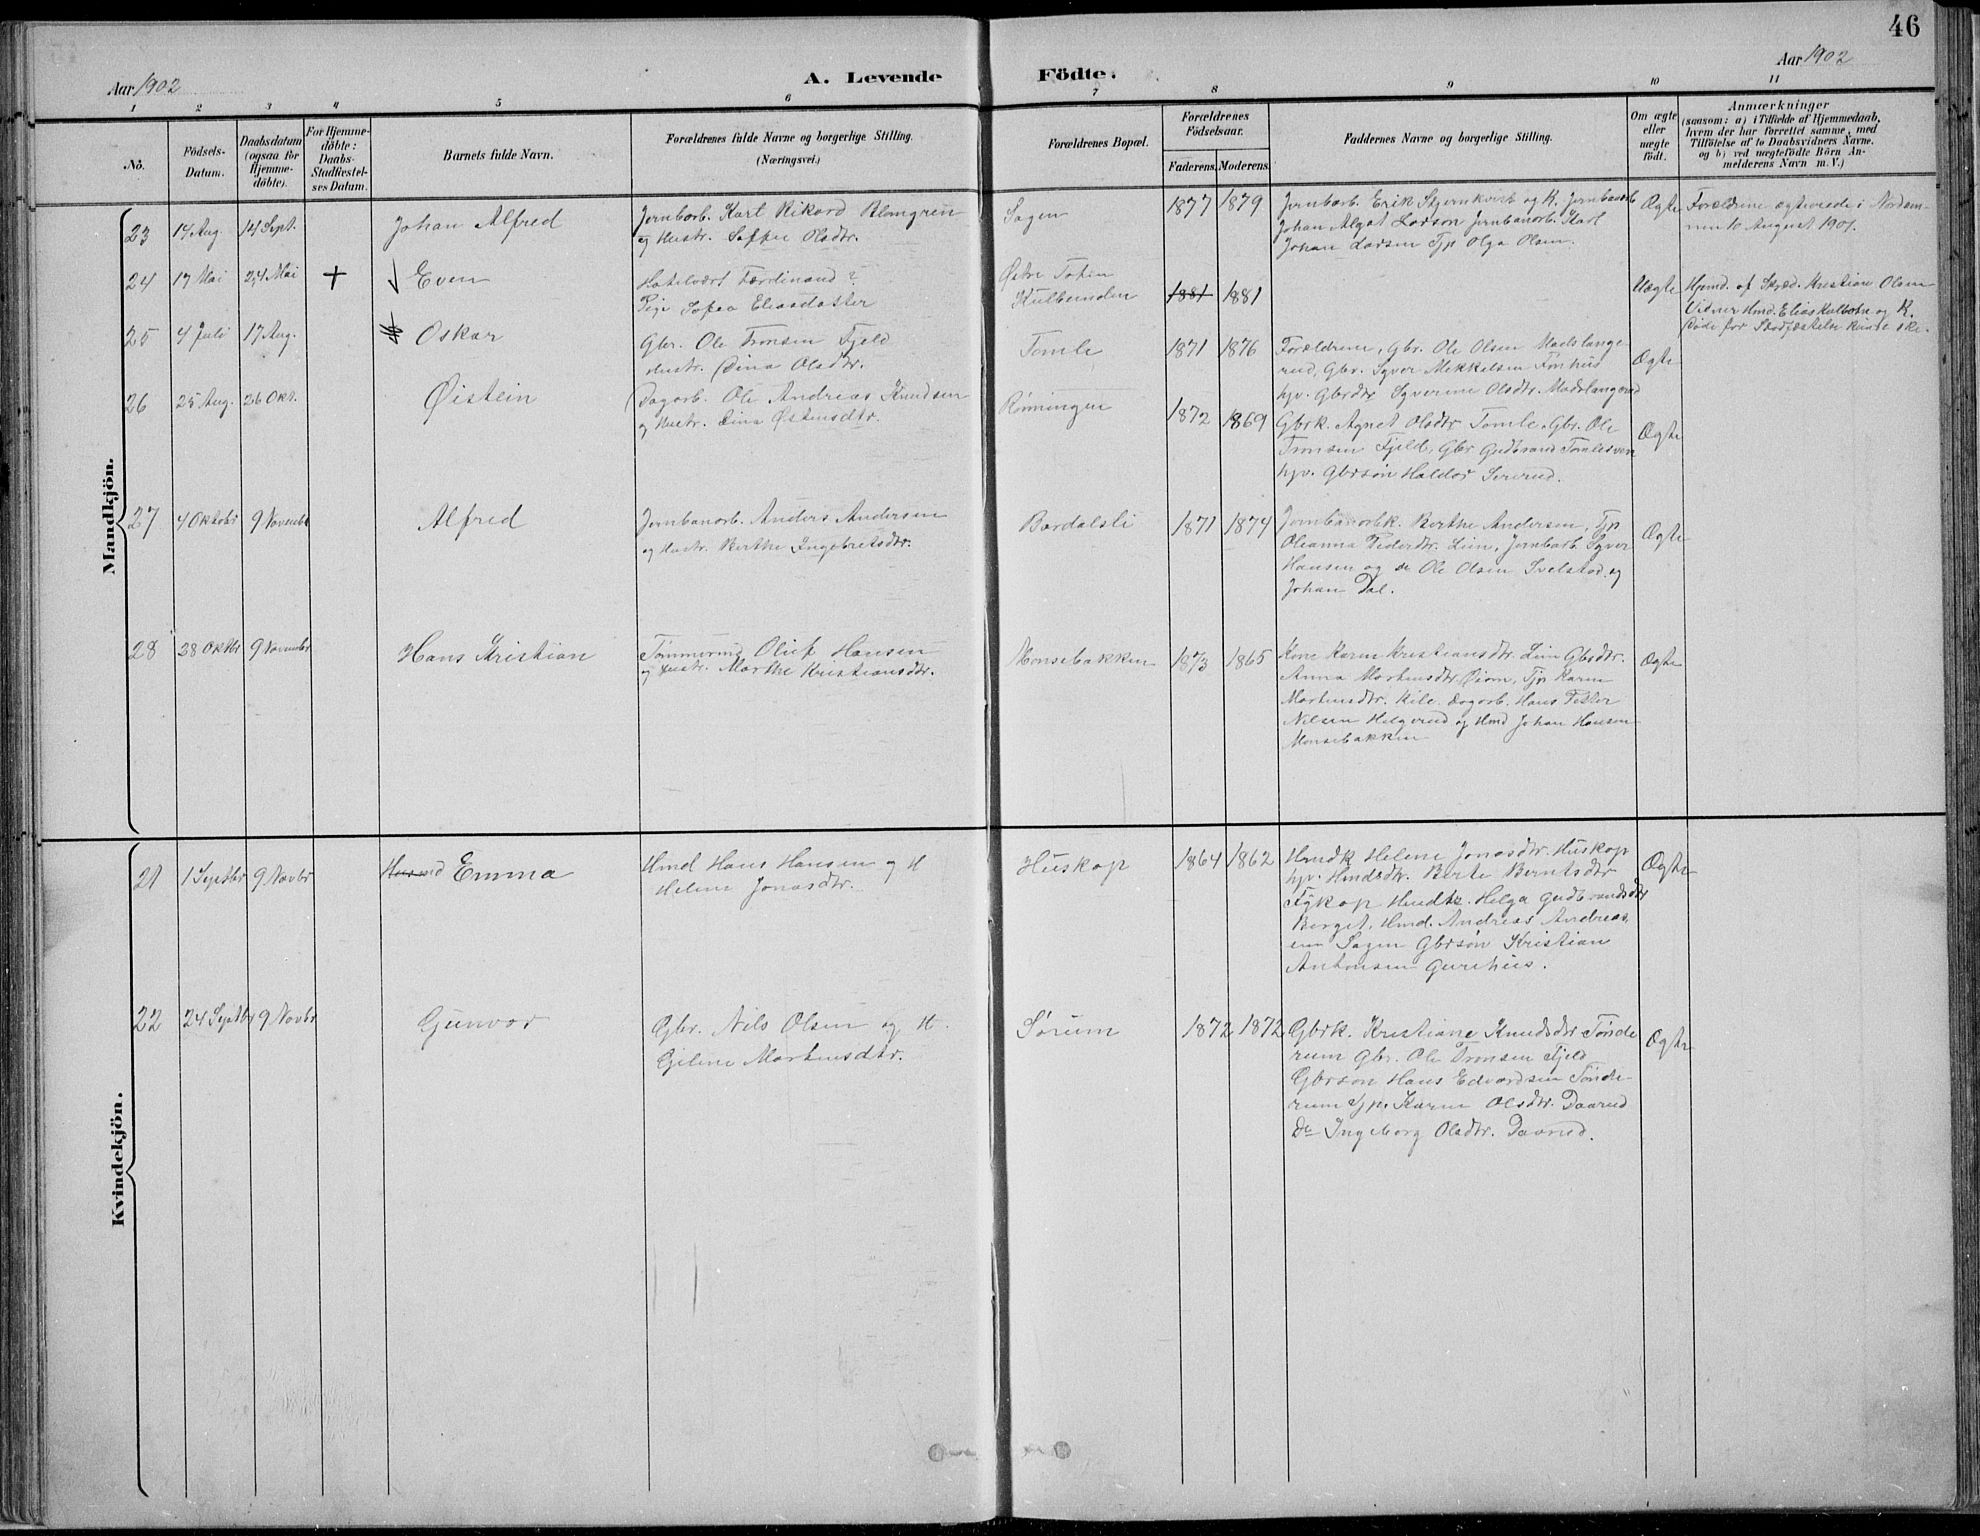 46
Aar 1902
A. Levende Födte.
Aar 1902
1 2 3 4 5 6 7 8 9 10 11
No.
Födsels-
Datum.
Daabsdatum
(ogsaa for
Hjemme-
döbte).
For Hjemme-
döbte:
Daabs-
Stadfæstel-
ses Datum.
Barnets fulde Navn.
Forældrenes fulde Navne og borgerlige Stilling.
(Næringsvei.)
Forældrenes Bopæl.
Forældrenes
Födselsaar.
Faderens. Moderens.
Faddernes Navne og borgerlige Stilling.
Om ægte
eller
uægte
födt.
Anmærkninger
(saasom: a) i Tilfælde af Hjemmedaab,
hvem der har forrettet samme, med
Tilföielse af to Daabsvidners Navne.
og b) ved uægtefödte Börn An-
melderens Navn m. V.)
Mandkjön.
23 14 Aug. 14 Sept. Johan Alfred
Jernbarb. Karl Rikard Blomgren
og Hustr. Olsdtr.
Sagen
1877 1879
Jernbarb. Erik Stjernkvist og K. Jernbanarb
Johan Algot Larson Jernbanarb. Karl
Johan Larsen Tjp Olga Olsen.
Ægte
Forældrene ægteviede i
10 August 1901.
24 17 Mai 24 Mai + Even
Ferdinand?
Pige Sofea Eliasdatter
Østre Toten
1881 1881
Uægte
Hjmd. af Kristian Olsen
Vidner Hmd. Elias og K.
Døde før Stadfæstelse kunde ske.
25 4 Juli 17 Aug. Oskar
Gbr. Ole Tronsen Fjeld
Hustr. Dina Olsdtr.
Tomle
1871 1876
Forældrene, Gbr. Ole Olsen Madslange
rud, Gbr. Syver Mikkelsen Fønhus
hjv. Gbrdtr Syverine Olsdtr. Madslangerud
Ægte
26 25 Aug. 26 Okt. Øistein
Dagarb. Ole Andreas Knudsen
og Hustr. Dina Østensdtr.
Rønningen
1872 1869
Gbrk. Agnet Olsdtr Tomle, Gbr. Ole
Tronsen Fjeld, Gbr Gudbrand Tomlesveen
hjv. Gbrsøn Haldor
Ægte
27 4 Oktobr 9 Novembr Alfred
Jernbanarb. Anders Andersen
og Hustr. Berthe Ingebretsdtr.
Bardalsli
1871 1874
Jernbanarbk. Berthe Andersen, Tjp
Oleanna Pedersdtr. Lien, Jernbarb. Syver
Hansen og do Ole Olsen og
Johan Dal.
Ægte
28 28 Oktbr 9 Novembr Hans Kristian
Hansen
og Hustr. Marthe Kristiansdtr.
Monsebakken
1873 1865
Kone Karen Kristiansdtr. Lien Gbrdtr.
Anna Martinsdtr. Tjp Karen
Martinsdtr. Kile. Dagarb. Hans Petter
Nilsen Helgerud og Hmd Johan Hansen
Monsebakken
Ægte
Kvindekjön.
21 1 Septbr 9 Novbr Emma
Hmd Hans Hansen og H
Helene Jonasdtr.
Huskop
1864 1862
Hmdk Helene Jonasdtr. Huskop
hjv. Hmdsdtr. Berte Berntsdtr
Hmdtr. Helga Gudbrandsdtr
Berget, Hmd. Andreas Andreas
sen Sagen Gbrsøn Kristian
Antonsen Gurihus.
Ægte
22 24 Septbr 9 Novbr Gunvor
Gbr. Nils Olsen og H.
Martinsdtr.
Sørum
1872 1872
Gbrk. Kristiane Knudsdtr Tønde
rum Gbr. Ole Tronsen Fjeld
Gbrsøn Hans Edvardsen Tønde-
rum Tjp. Karen Olsdtr. Daarud
Do Ingeborg Olsdtr. Daarud.
Ægte